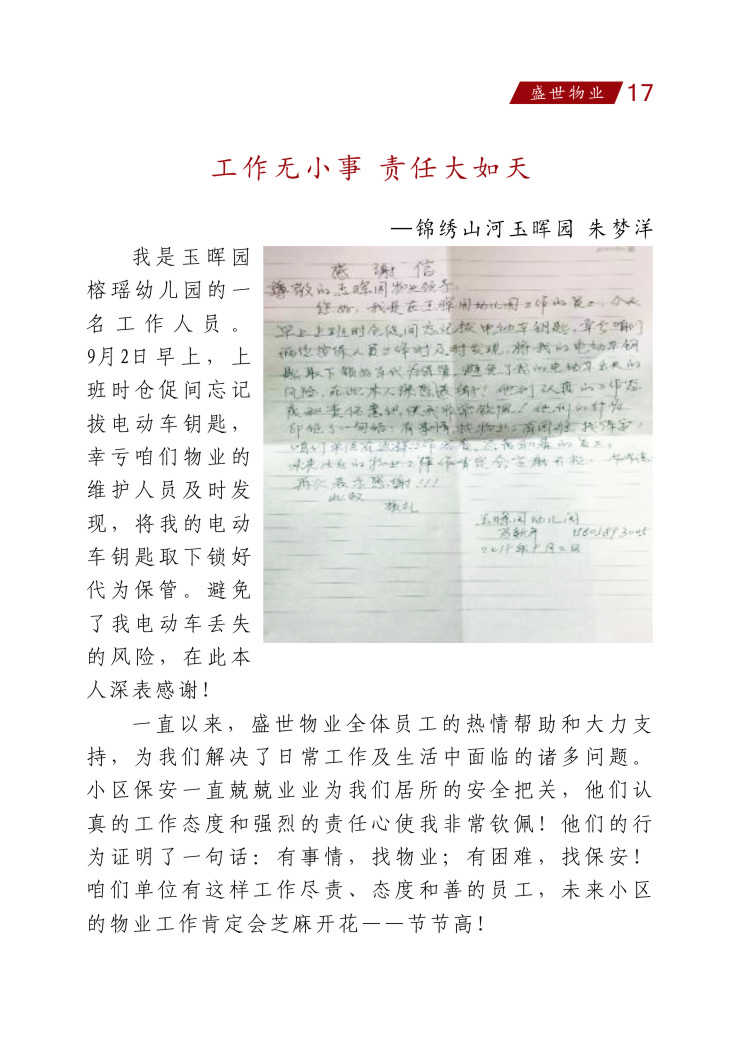 盛世物业 17
工作无小事 责任大如天
—锦绣山河玉晖园 朱梦洋
我是玉晖园
榕瑶幼儿园的一
名工作人员。
9月2日早上，上
班时仓促间忘记
拔电动车钥匙，
幸亏咱们物业的
维护人员及时发
现，将我的电动
车钥匙取下锁好
代为保管。避免
了我电动车丢失
的风险，在此本
人深表感谢！
感谢信
尊敬的玉晖园物业领导：
您好，我是在玉晖园幼儿园工作的员工，今天
早上上班时仓促间忘记拔电动车钥匙，幸亏咱们
人员工作时及时发现，将我的电动车钥
匙取下锁好代为保管，避免了我的电动车丢失的
风险，在此本人深感感谢！他们认真的工作态
我非常钦佩！他们的行为
一句话：有事情，找物业；有困难，找保安！
再次表示感谢！！！
此致
敬礼
玉晖园幼儿园
一直以来，盛世物业全体员工的热情帮助和大力支
持，为我们解决了日常工作及生活中面临的诸多问题。
小区保安一直兢兢业业为我们居所的安全把关，他们认
真的工作态度和强烈的责任心使我非常钦佩！他们的行
为证明了一句话：有事情，找物业；有困难，找保安！
咱们单位有这样工作尽责、态度和善的员工，未来小区
的物业工作肯定会芝麻开花——节节高！